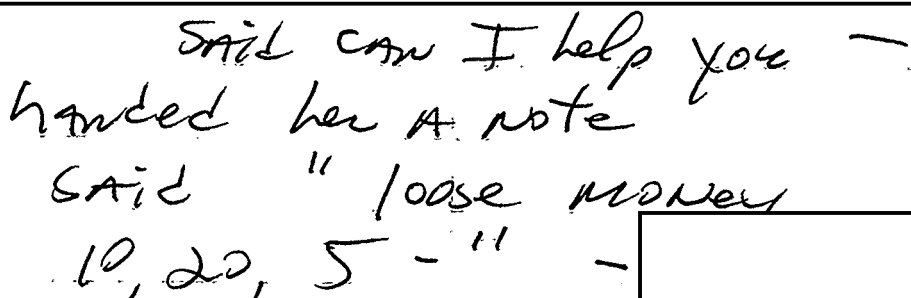 SAid CAN I help you –
hANded her A Note
SAid " loose MONey
10, 20, 5 - " –